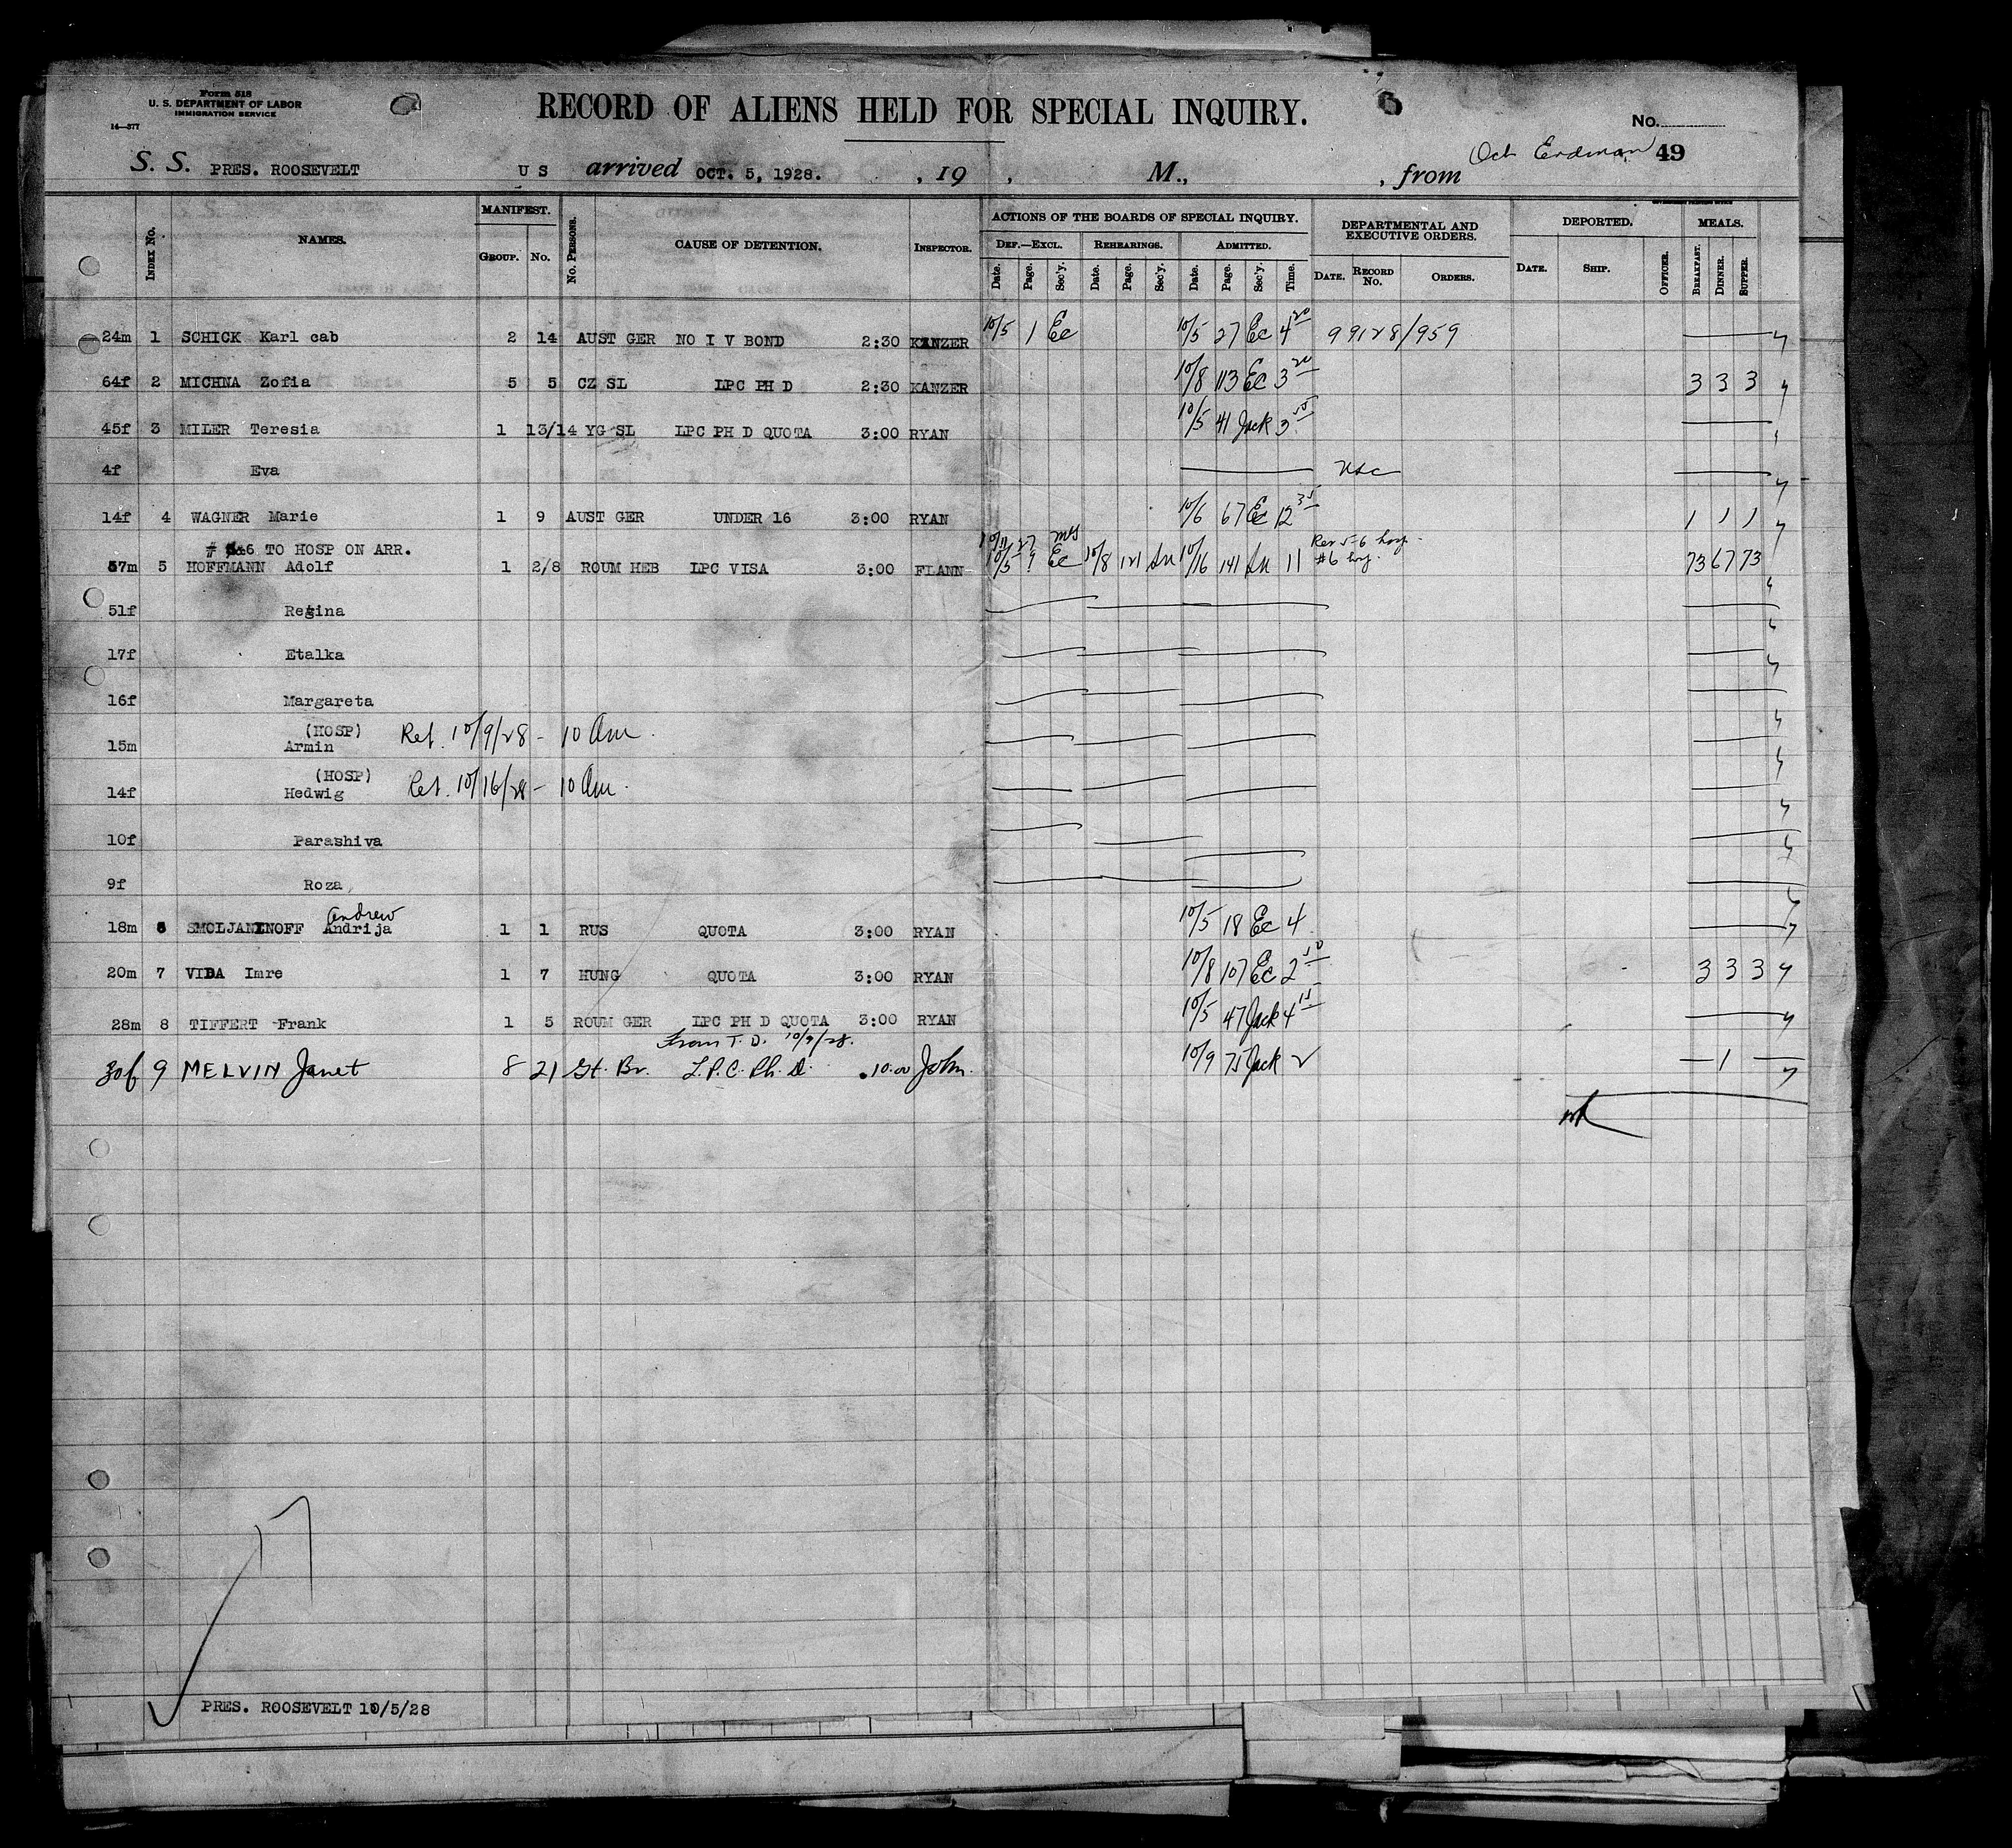 Form 518
U. S. DEPARTMENT OF LABOR
IMMIGRATION SERVICE
14—377
RECORD OF ALIENS HELD FOR SPECIAL INQUIRY.
No.
49
S. S. PRES. ROOSEVELT U S arrived OCT. 5, 1928. , 19 , M., , from Erdman
INDEX NO. NAMES. MANIFEST. GROUP. NO. NO. PERSONS. CAUSE OF DETENTION. INSPECTOR. ACTIONS OF THE BOARDS OF SPECIAL INQUIRY. DEPARTMENTAL AND EXECUTIVE ORDERS. DEPORTED. MEALS.
DEF.—EXCL. REHEARINGS. ADMITTED.
Date. Page. Sec'y. Date. Page. Sec'y. Date. Page. Sec'y. Time. DATE. RECORD NO. ORDERS. DATE. SHIP. OFFICER. BREAKFAST. DINNER. SUPPER.
24m 1 SCHICK Karl cab 2 14 AUST GER NO I V BOND 2:30 KANZER 10/5 1 Ec 10/5 27 Ec 4 20 99128/959
64f 2 MICHNA Zofia 5 5 CZ SL LPC PH D 2:30 KANZER 10/8 113 Ec 3 20 3 3 3
45f 3 MILER Teresia 1 13/14 YG SL LPC PH D QUOTA 3:00 RYAN 10/5 41 Jack 3
4f Eva USC
14f 4 WAGNER Marie 1 9 AUST GER UNDER 16 3:00 RYAN 10/6 67 Ec 12 35 1 1 1
# 5&6 TO HOSP ON ARR. 10/11 27
57m 5 HOFFMANN Adolf 1 2/8 ROUM HEB LPC VISA 3:00 FLANN 10/5 9 Ec 10/8 121 10/16 141 11 #6 73 67 73
51f Regina
17f Etalka
16f Margareta
(HOSP)
15m Armin Ret. 10/9/28 - 10 Am.
(HOSP)
14f Hedwig Ret. 10/16/28 - 10 Am.
10f Parashiva
9f Roza
Andrew
18m 6 SMOLJANINOFF Andrija 1 1 RUS QUOTA 3:00 RYAN 10/5 18 Ec 4
20m 7 VIDA Imre 1 7 HUNG QUOTA 3:00 RYAN 10/8 107 Ec 2 50 3 3 3
28m 8 TIFFERT Frank 1 5 ROUM GER LPC PH D QUOTA 3:00 RYAN 10/5 47 Jack 4 15
From T. D. 10/9/28.
30f 9 MELVIN Janet 8 21 Gt. Br. L.P.C. Ph. D. 10:00 John. 10/9 75 Jack 2 1
PRES. ROOSEVELT 10/5/28